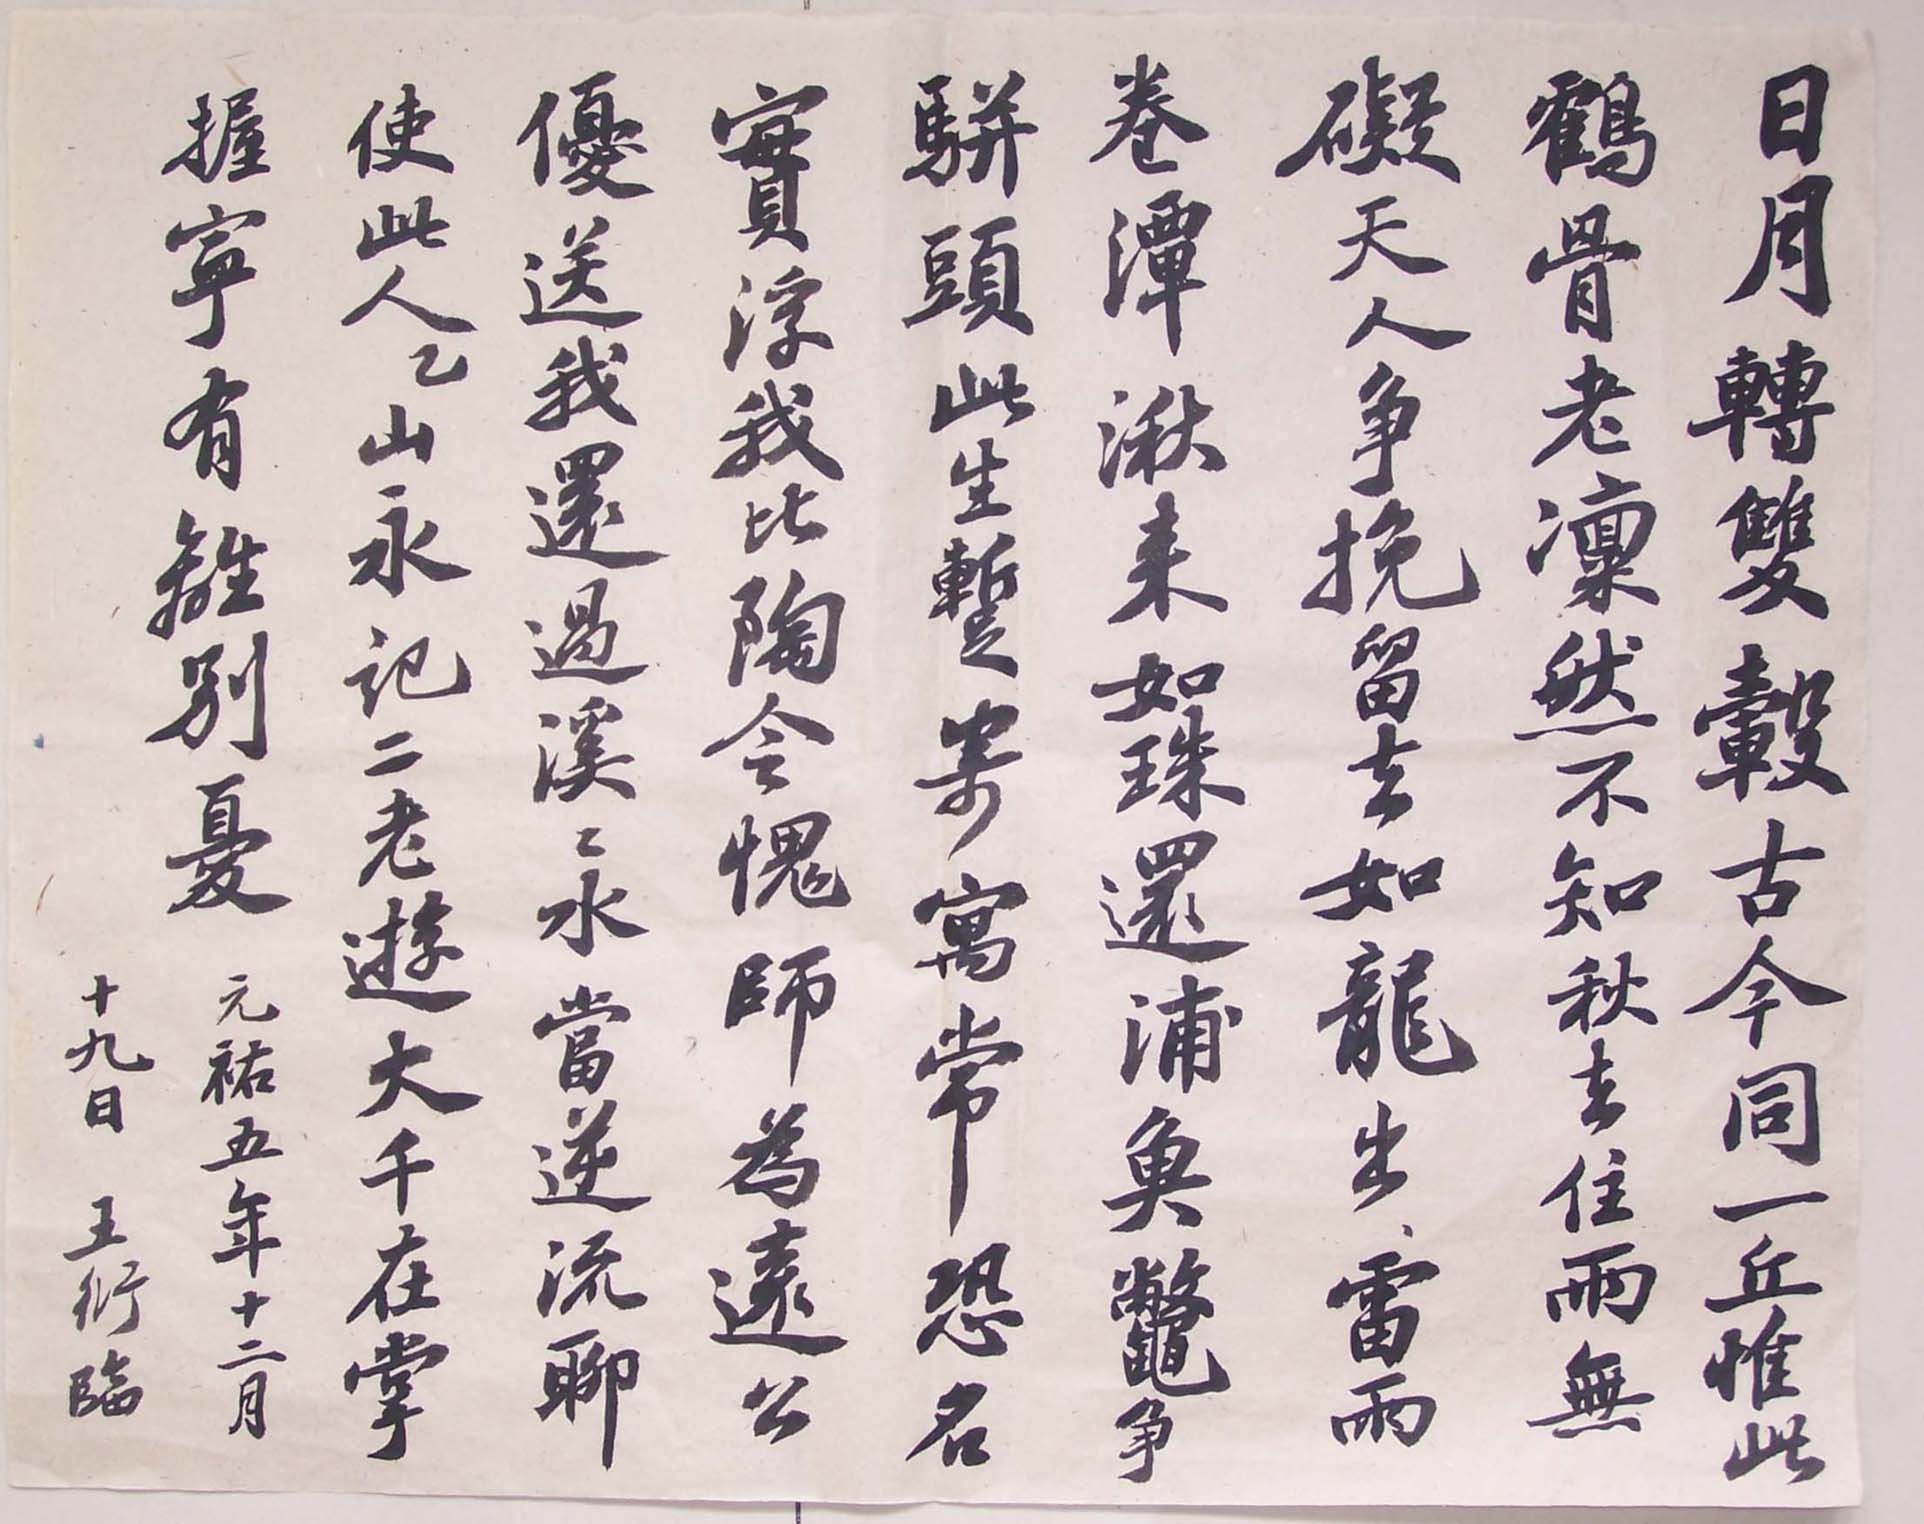 日月轉雙轂古今同一丘惟此
鶴骨老凜然不知秋去住兩無
礙天人爭挽留去如龍出雷雨
卷潭湫来如珠還浦魚鼈爭
駢頭此生蹔寄寓常恐名
實浮我比陶令愧師為遠公
優送我還過溪〻水當逆流聊
使此人乙山永記二老遊大千在掌
握寧有離別憂
元祐五年十二月
十九日 王衍臨